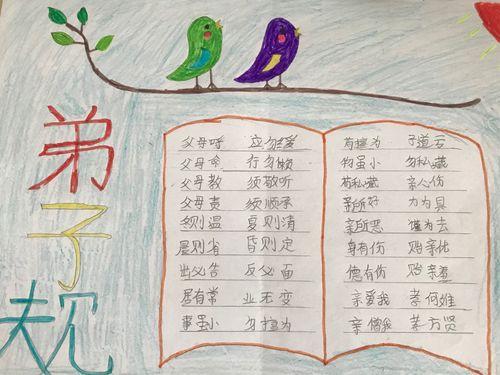 弟子规
父母呼 应勿缓
父母命 行勿懒
父母教 须敬听
父母责 须顺承
冬则温 夏则清
晨则省 昏则定
出必告 反必面
居有常 业无变
事虽小 勿擅为
苟擅为 子道亏
物虽小 勿私藏
苟私藏 亲人伤
亲所好 力为具
亲所恶 谨为去
身有伤 贻亲忧
德有伤 贻亲羞
亲爱我 孝何难
亲憎我 孝方贤